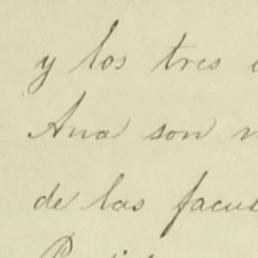 y los tres
Ana son
de las facul